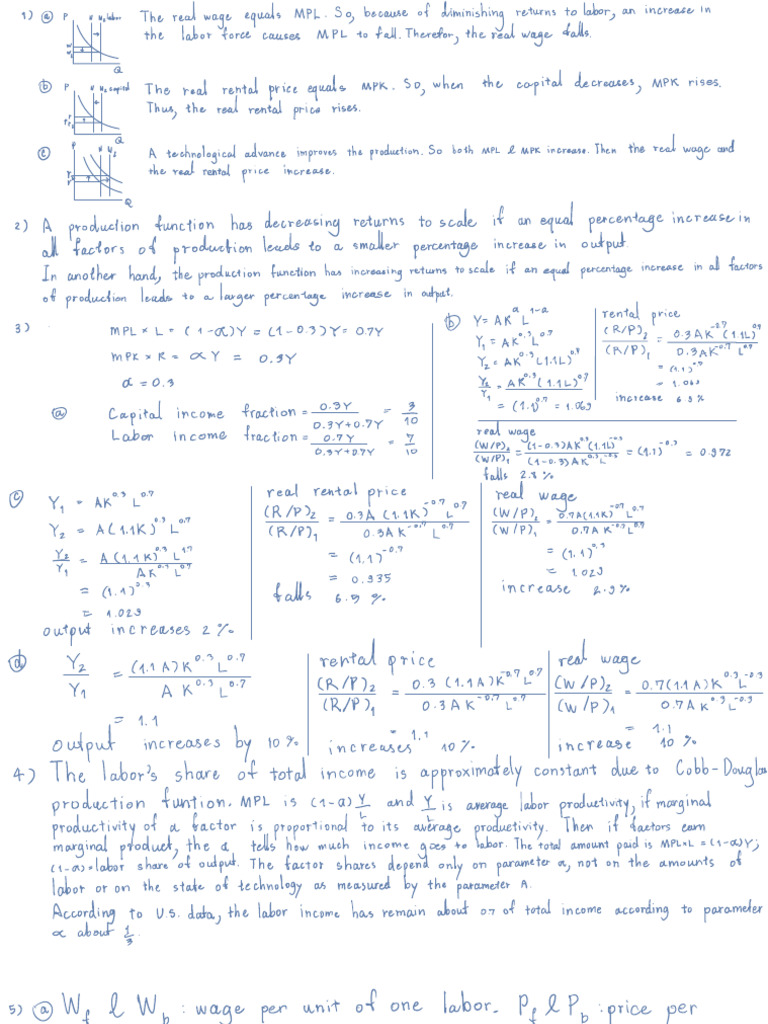 1) ⓐ P N N₂ labor The real wage equals MPL. So, because of diminishing returns to labor, an increase in
the labor force causes MPL to fall. Therefor, the real wage falls.
Q
ⓑ P N N₂ capital The real rental price equals MPK. So, when the capital decreases, MPK rises.
Thus, the real rental price rises.
Q
ⓒ P N N₂ A technological advance improves the production. So both MPL & MPK increase. Then the real wage and
the real rental price increase.
Q
2) A production function has decreasing returns to scale if an equal percentage increase in
all factors of production leads to a smaller percentage increase in output.
In another hand, the production function has increasing returns to scale if an equal percentage increase in all factors
of production leads to a larger percentage increase in output.
3) MPL × L = (1-α)Y = (1-0.3)Y = 0.7Y
MPK × K = αY = 0.3Y
α = 0.3
ⓐ Capital income fraction = 0.3Y / 0.3Y+0.7Y = 3/10
Labor income fraction = 0.7Y / 0.3Y+0.7Y = 7/10
ⓑ Y = AK^α L^1-α
Y₁ = AK^0.3 L^0.7
Y₂ = AK^0.3 (1.1L)^0.7
Y₂/Y₁ = AK^0.3 (1.1L)^0.7 / AK^0.3 L^0.7
= (1.1)^0.7 = 1.069
rental price
(R/P)₂ / (R/P)₁ = 0.3AK^-0.7 (1.1L)^0.7 / 0.3AK^-0.7 L^0.7
= (1.1)^0.7
= 1.069
increase 6.9%
real wage
(W/P)₂ / (W/P)₁ = (1-0.3)AK^0.3 (1.1L)^-0.3 / (1-0.3)AK^0.3 L^-0.3 = (1.1)^-0.3 = 0.972
falls 2.8%
ⓒ Y₁ = AK^0.3 L^0.7
Y₂ = A(1.1K)^0.3 L^0.7
Y₂/Y₁ = A(1.1K)^0.3 L^0.7 / AK^0.3 L^0.7
= (1.1)^0.3
= 1.029
output increases 2%
real rental price
(R/P)₂ / (R/P)₁ = 0.3A(1.1K)^-0.7 L^0.7 / 0.3AK^-0.7 L^0.7
= (1.1)^-0.7
= 0.935
falls 6.5%
real wage
(W/P)₂ / (W/P)₁ = 0.7A(1.1K)^0.3 L^-0.3 / 0.7AK^0.3 L^-0.3
= (1.1)^0.3
= 1.029
increase 2.9%
ⓓ Y₂/Y₁ = (1.1A)K^0.3 L^0.7 / AK^0.3 L^0.7
= 1.1
output increases by 10%
rental price
(R/P)₂ / (R/P)₁ = 0.3(1.1A)K^-0.7 L^0.7 / 0.3AK^-0.7 L^0.7
= 1.1
increases 10%
real wage
(W/P)₂ / (W/P)₁ = 0.7(1.1A)K^0.3 L^-0.3 / 0.7AK^0.3 L^-0.3
= 1.1
increase 10%
4) The labor's share of total income is approximately constant due to Cobb-Douglas
production funtion. MPL is (1-α)Y/L and Y/L is average labor productivity, if marginal
productivity of a factor is proportional to its average productivity. Then if factors earn
marginal product, the α tells how much income goes to labor. The total amount paid is MPL×L = (1-α)Y;
(1-α) = labor share of output. The factor shares depend only on parameter α, not on the amounts of
labor or on the state of technology as measured by the parameter A.
According to U.S. data, the labor income has remain about 0.7 of total income according to parameter
α about 1/3.
5) ⓐ W_f & W_b : wage per unit of one labor. P_f & P_b : price per